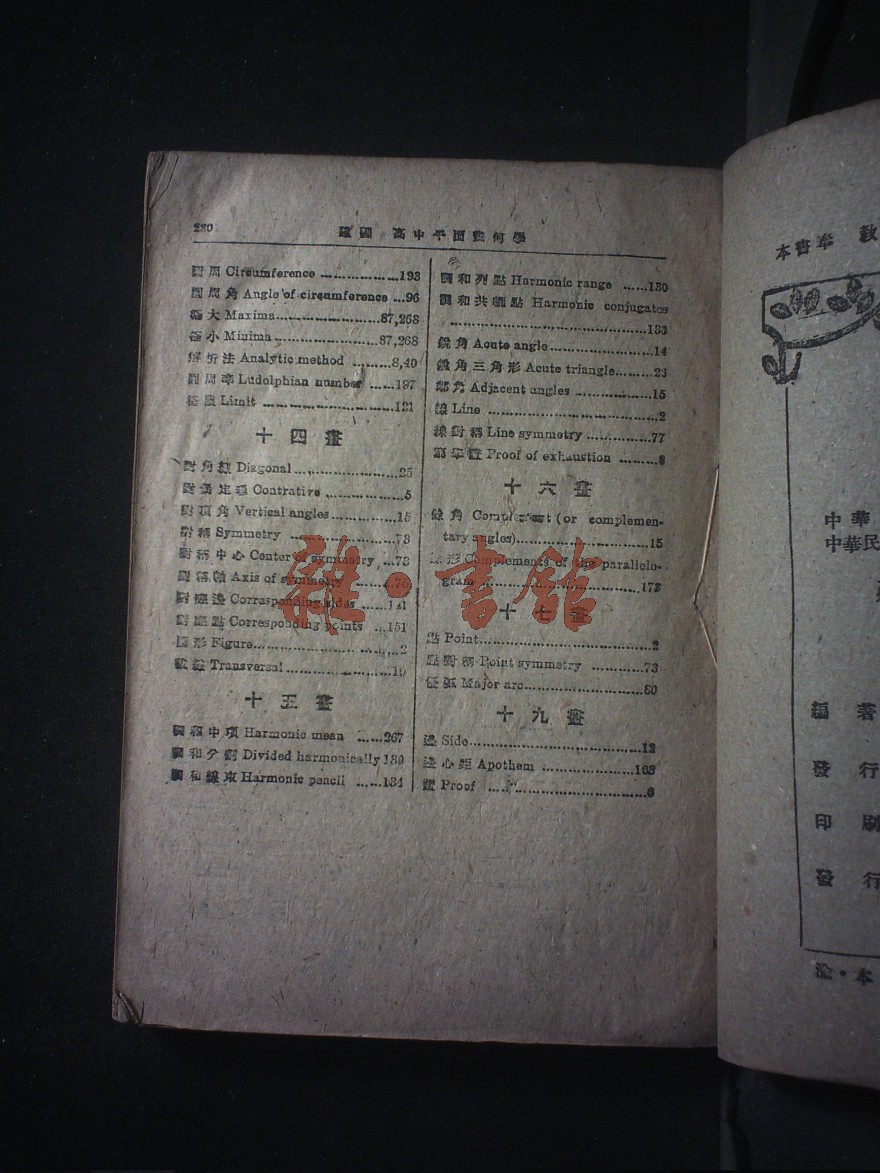 280
建國 高中平面幾何學
圓周 Circumference ..................193
圓周角 Angle of circumference ...96
極大 Maxima.......................87,268
極小 Minima.......................87,268
解析法 Analytic method .........8,40
圓周率 Ludolphian number ......197
極限 Limit ..............................181
十四畫
對角線 Diagonal........................25
Contrative ..................5
對頂角 Vertical angles...............15
對稱 Symmetry ........................73
對稱中心 Center of symmetry ...73
對稱軸 Axis of symmetry
對應邊 Corresponding sides
對應點 Corresponding points ...151
圖形 Figure..............................2
截線 Transversal.....................19
十五畫
調和中項 Harmonic mean ......267
調和分割 Divided harmonically
調和線束 Harmonic pencil ......
調和列點 Harmonic range ......
調和共軛點 Harmonic conjugates
銳角 Acute angle.....................14
銳角三角形 Acute triangle.........
鄰角 Adjacent angles ...............15
線 Line .................................2
線對稱 Line symmetry ............77
窮舉證 Proof of exhaustion .........8
十六畫
餘角 Complement (or complemen-
tary angles)........................15
餘形 Complements of the parallelo-
gram
十七畫
點 Point.................................2
點對稱 Point symmetry .........73
優弧 Major arc........................
十九畫
邊 Side.................................12
邊心距 Apothem ..................
證 Proof ..............................6
雜·書館
本書奉 教
中華
中華民
編著
發行
印刷
發行
本